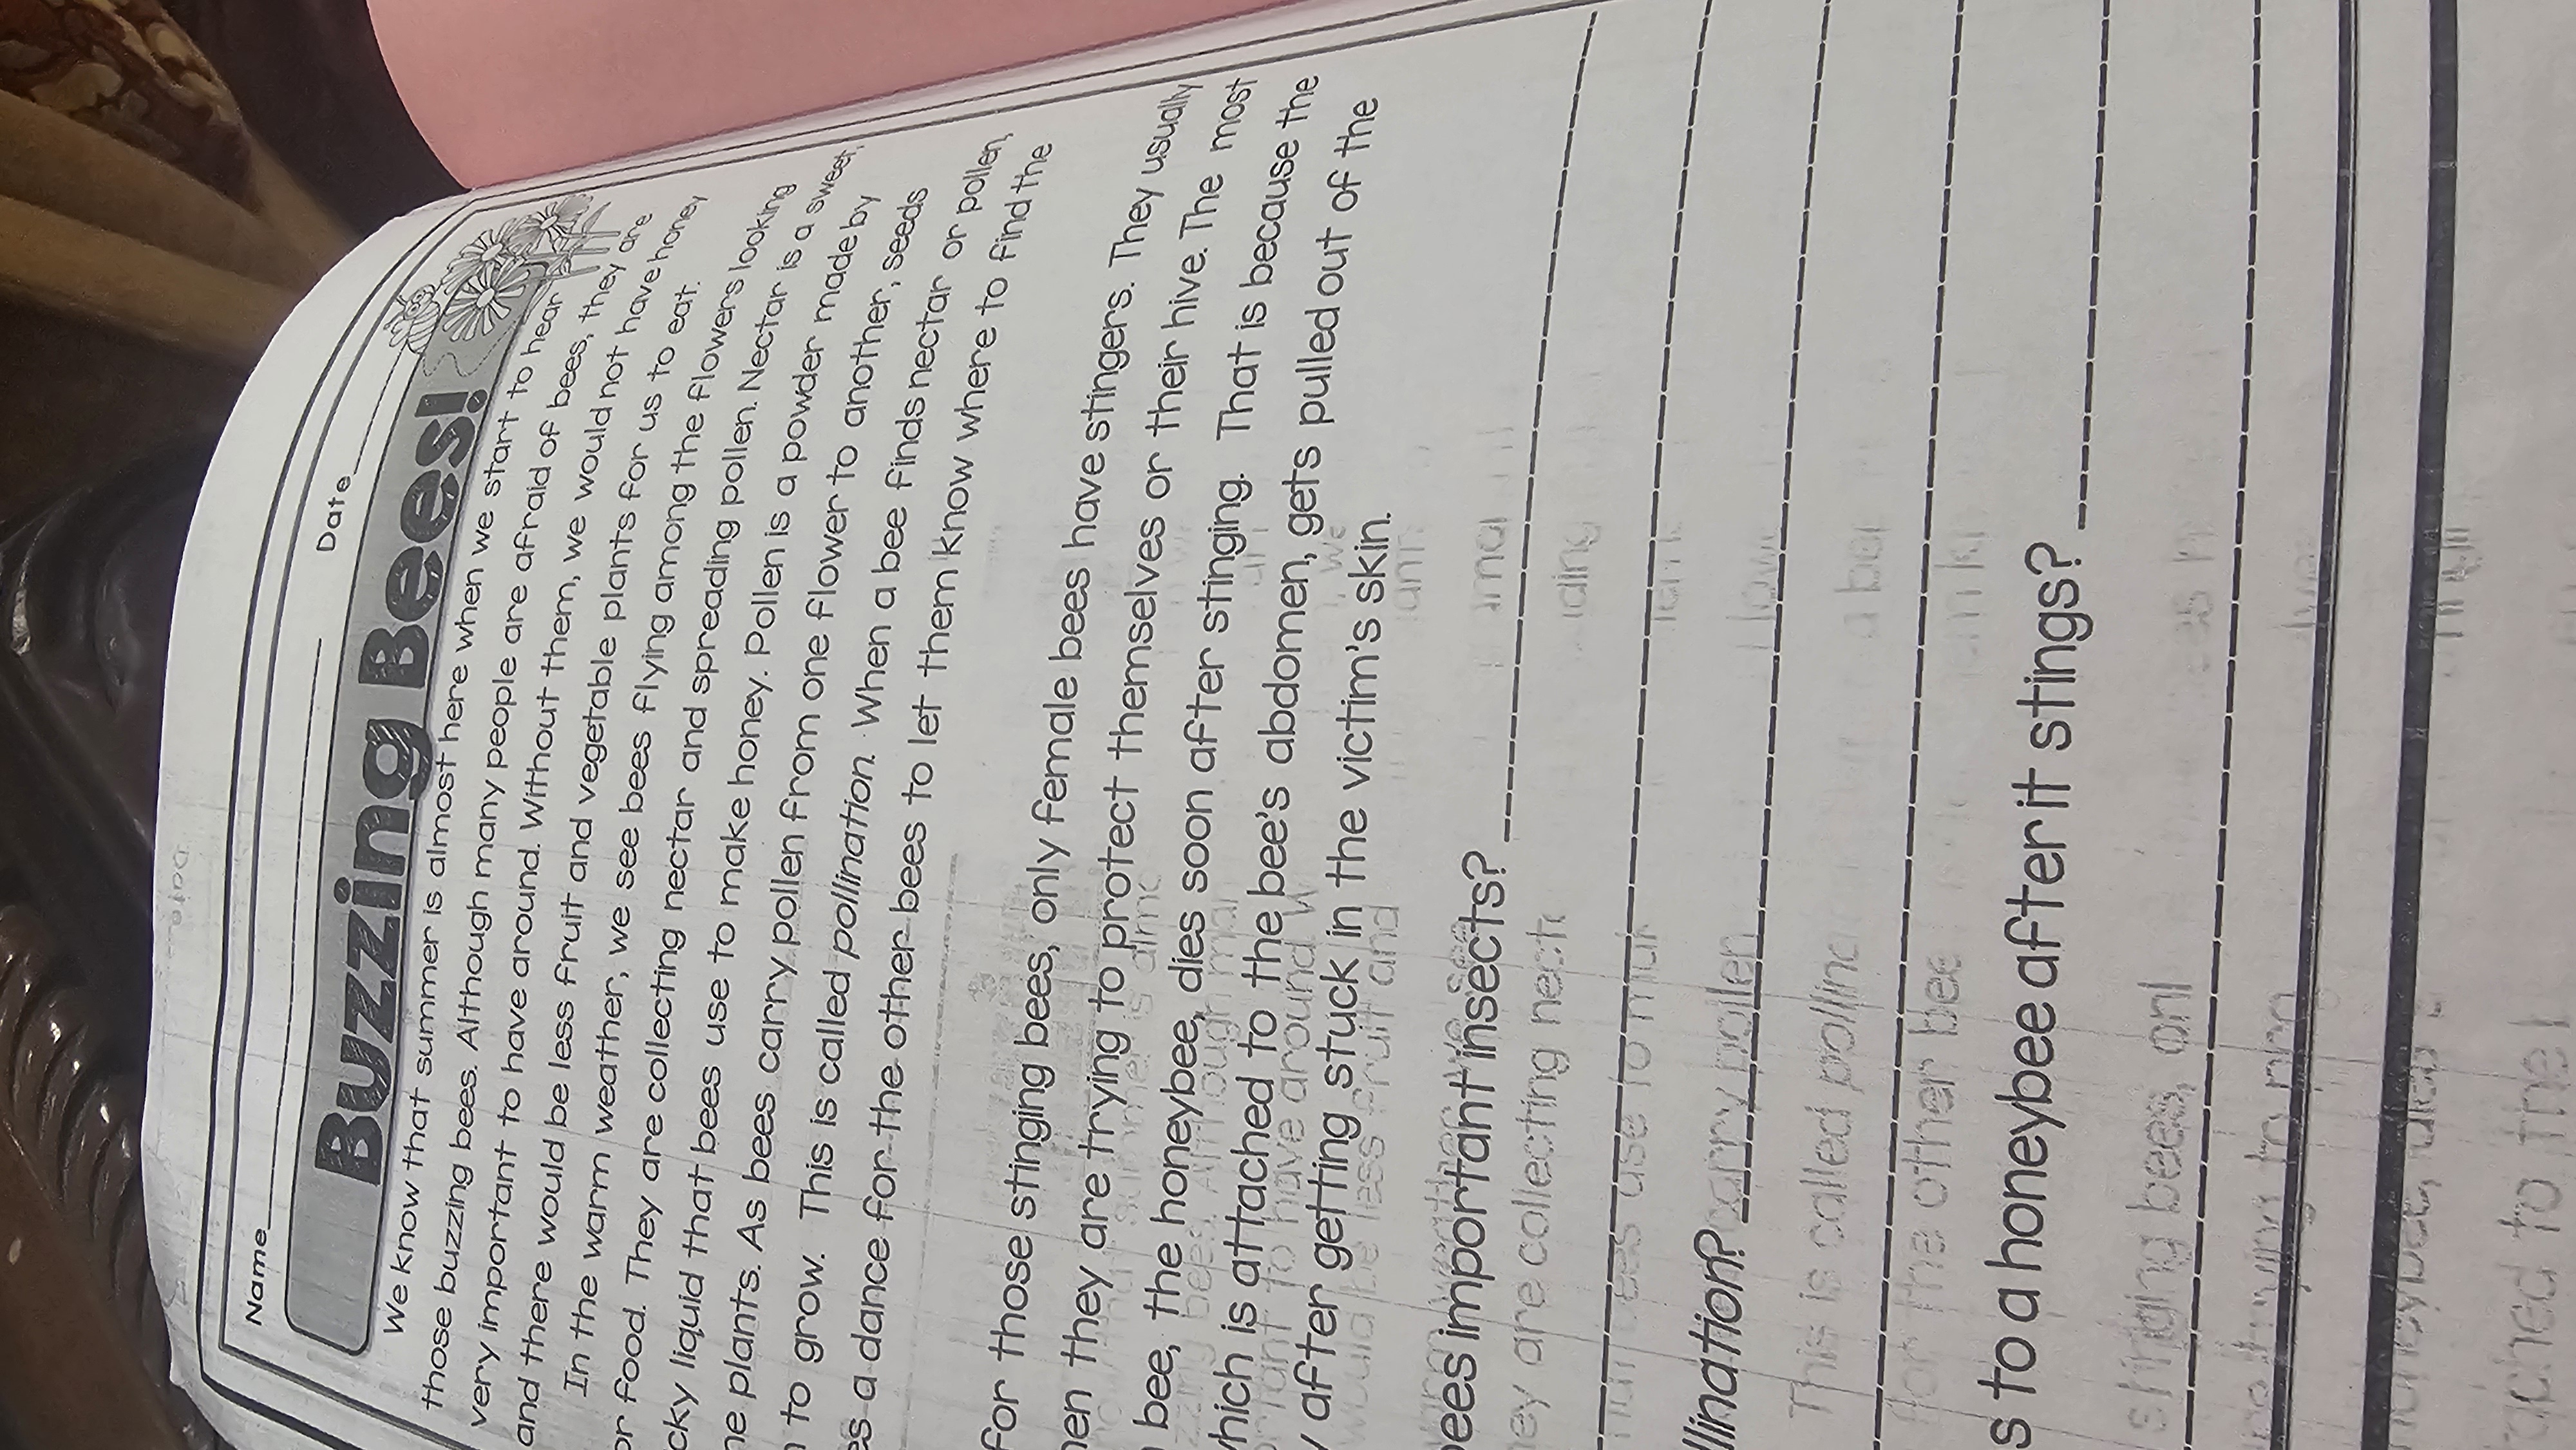 Name Date
Buzzing Bees!
We know that summer is almost here when we start to hear
those buzzing bees. Although many people are afraid of bees, they are
very important to have around. Without them, we would not have honey
and there would be less fruit and vegetable plants for us to eat.
In the warm weather, we see bees flying among the flowers looking
or food. They are collecting nectar and spreading pollen. Nectar is a sweet,
cky liquid that bees use to make honey. Pollen is a powder made by
he plants. As bees carry pollen from one flower to another, seeds
to grow. This is called pollination. When a bee finds nectar or pollen,
es a dance for the other bees to let them know where to find the
for those stinging bees, only female bees have stingers. They usually
hen they are trying to protect themselves or their hive. The most
bee, the honeybee, dies soon after stinging. That is because the
hich is attached to the bee's abdomen, gets pulled out of the
y after getting stuck in the victim's skin.
ees important insects?
llination?
s to a honeybee after it stings?